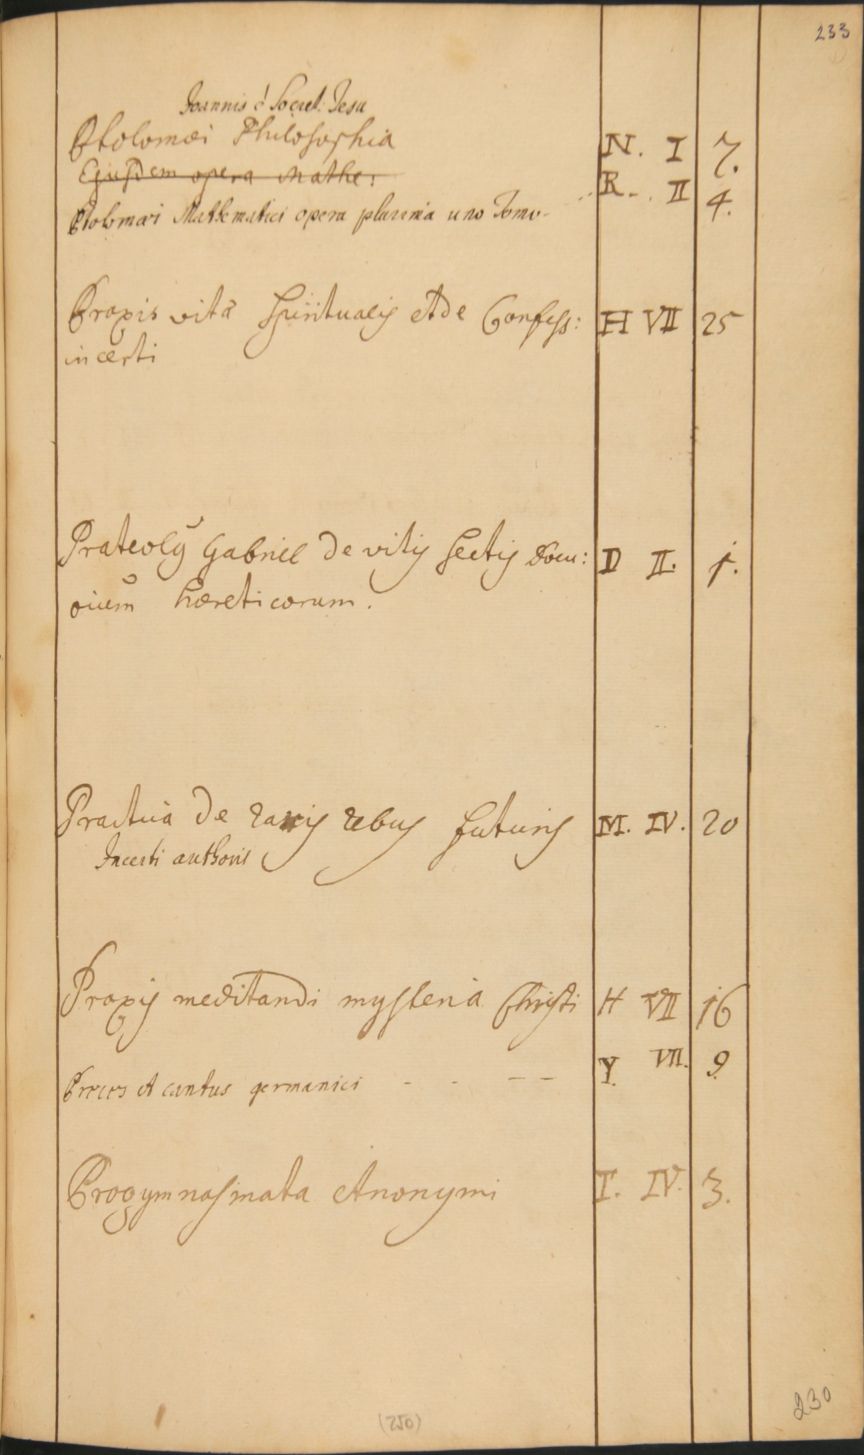 233
Joannis è Societ. Jesu
Ptolomæi Philosophia N. I 7.
Ejusdem opera Mathe:
Ptolomæi Mathematici opera plurima uno Tomo - R. II 4.
Praxis vitæ spiritualis et de Confess: H VII 25
incerti
Prateolus Gabriel de vitis sectis D II. 1.
hæreticorum.
Practica de rebus futuris M. IV. 20
Incerti authoris
Praxis meditandi mysteria Christi H VII 16
Preces et cantus germanici - - - - Y VII. 9
Progymnasmata Anonymi I. IV. 3.
(250)
230